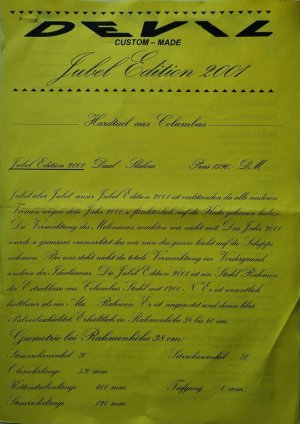 DEVIL
CUSTOM - MADE
Jubel Edition 2001
Hardtail aus Columbus
Jubel Edition 2001 Dual - Slalom Preis 1590,- D.M
Jubel über Jubel unser Jubel Edition 2001 ist entstanden da alle anderen
Firmen wegen dem Jahr 2000 so fürchterlich auf die Kacke gehauen haben.
Die Vermarktung des Mileniums machten wir nicht mit. Das Jahr 2000
wurde so grausam vermarktet das wir nun das ganze leicht auf die Schippe
nehmen. Bei uns steht nicht die totale Vermarktung im Vordergrund
sondern der Idealismus. Die Jubel Edition 2001 ist ein Stahl Rahmen
der Extraklasse aus Columbus Stahl mit 1200 N. Er ist wesentlich
haltbarer als ein Alu Rahmen. Er ist ungerostet und dann klar
Pulverbeschichtet. Erhältlich in Rahmenhöhe 38 bis 40 cm.
Geometrie bei Rahmenhöhe 38 cm:
Steuerrohrwinkel 70 Sitzrohrwinkel 71
Oberrohrlänge 570 mm
Kettenstrebenlänge 400 mm Tiefgang 0 mm
Steuerrohrlänge 120 mm